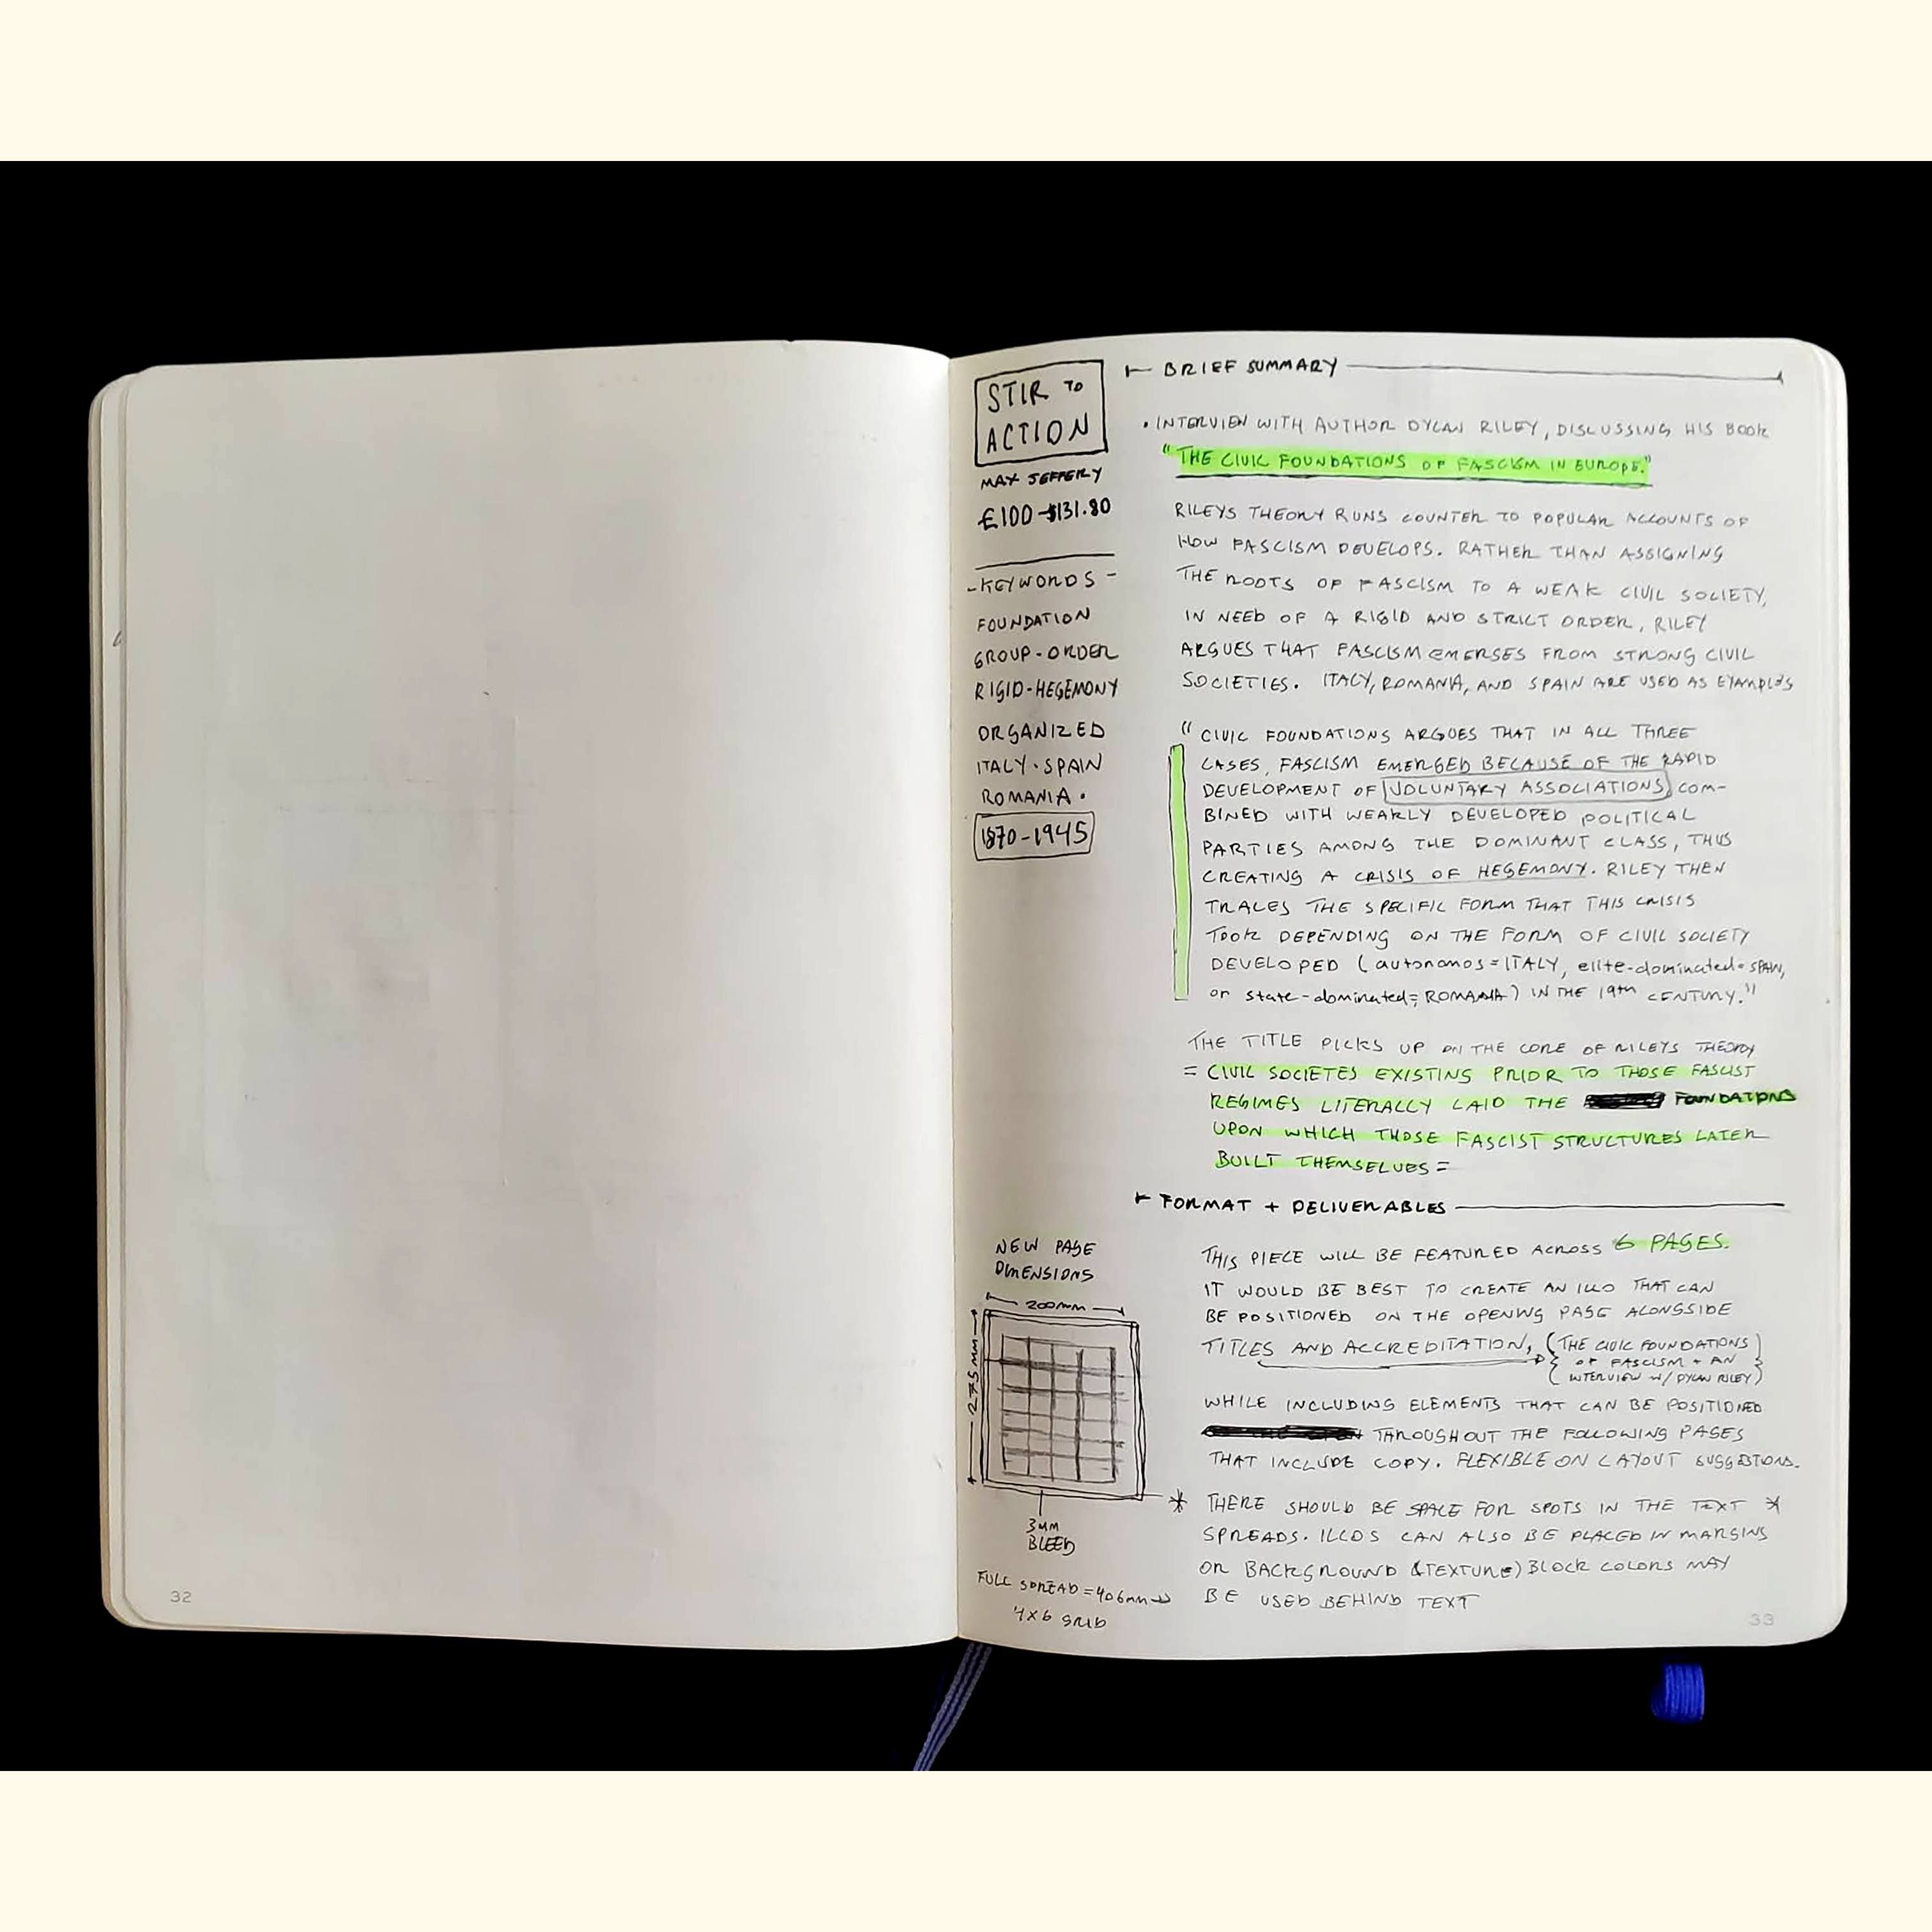 32
STIR TO
ACTION
MAX JEFFERY
£100 - $131.80
- KEYWORDS -
FOUNDATION
GROUP-ORDER
RIGID-HEGEMONY
ORGANIZED
ITALY · SPAIN
ROMANIA ·
1870-1945
BRIEF SUMMARY
• INTERVIEW WITH AUTHOR DYLAN RILEY, DISCUSSING HIS BOOK
"THE CIVIC FOUNDATIONS OF FASCISM IN EUROPE."
RILEYS THEORY RUNS COUNTER TO POPULAR ACCOUNTS OF
HOW FASCISM DEVELOPS. RATHER THAN ASSIGNING
THE ROOTS OF FASCISM TO A WEAK CIVIL SOCIETY,
IN NEED OF A RIGID AND STRICT ORDER, RILEY
ARGUES THAT FASCISM EMERGES FROM STRONG CIVIL
SOCIETIES. ITALY, ROMANIA, AND SPAIN ARE USED AS EXAMPLES
"CIVIC FOUNDATIONS ARGUES THAT IN ALL THREE
CASES, FASCISM EMERGED BECAUSE OF THE RAPID
DEVELOPMENT OF VOLUNTARY ASSOCIATIONS COM-
BINED WITH WEAKLY DEVELOPED POLITICAL
PARTIES AMONG THE DOMINANT CLASS, THUS
CREATING A CRISIS OF HEGEMONY. RILEY THEN
TRACES THE SPECIFIC FORM THAT THIS CRISIS
TOOK DEPENDING ON THE FORM OF CIVIL SOCIETY
DEVELOPED (autonomos = ITALY, elite-dominated = SPAIN,
or state-dominated = ROMANIA) IN THE 19th CENTURY."
THE TITLE PICKS UP ON THE CORE OF RILEYS THEORY
= CIVIL SOCIETES EXISTING PRIOR TO THOSE FASCIST
REGIMES LITERALLY LAID THE FOUNDATIONS
UPON WHICH THOSE FASCIST STRUCTURES LATER
BUILT THEMSELVES =
FORMAT + DELIVERABLES
NEW PAGE
DIMENSIONS
200mm
275mm
3mm
BLEED
FULL SPREAD = 406mm →
4x6 GRID
THIS PIECE WILL BE FEATURED ACROSS 6 PAGES.
IT WOULD BE BEST TO CREATE AN ILLO THAT CAN
BE POSITIONED ON THE OPENING PAGE ALONGSIDE
TITLES AND ACCREDITATION,
(THE CIVIC FOUNDATIONS
OF FASCISM + AN
INTERVIEW W/ DYLAN RILEY)
WHILE INCLUDING ELEMENTS THAT CAN BE POSITIONED
THROUGHOUT THE FOLLOWING PAGES
THAT INCLUDE COPY. FLEXIBLE ON LAYOUT SUGGESTIONS.
* THERE SHOULD BE SPACE FOR SPOTS IN THE TEXT *
SPREADS. ILLOS CAN ALSO BE PLACED IN MARGINS
OR BACKGROUND (TEXTURE) BLOCK COLORS MAY
BE USED BEHIND TEXT
33